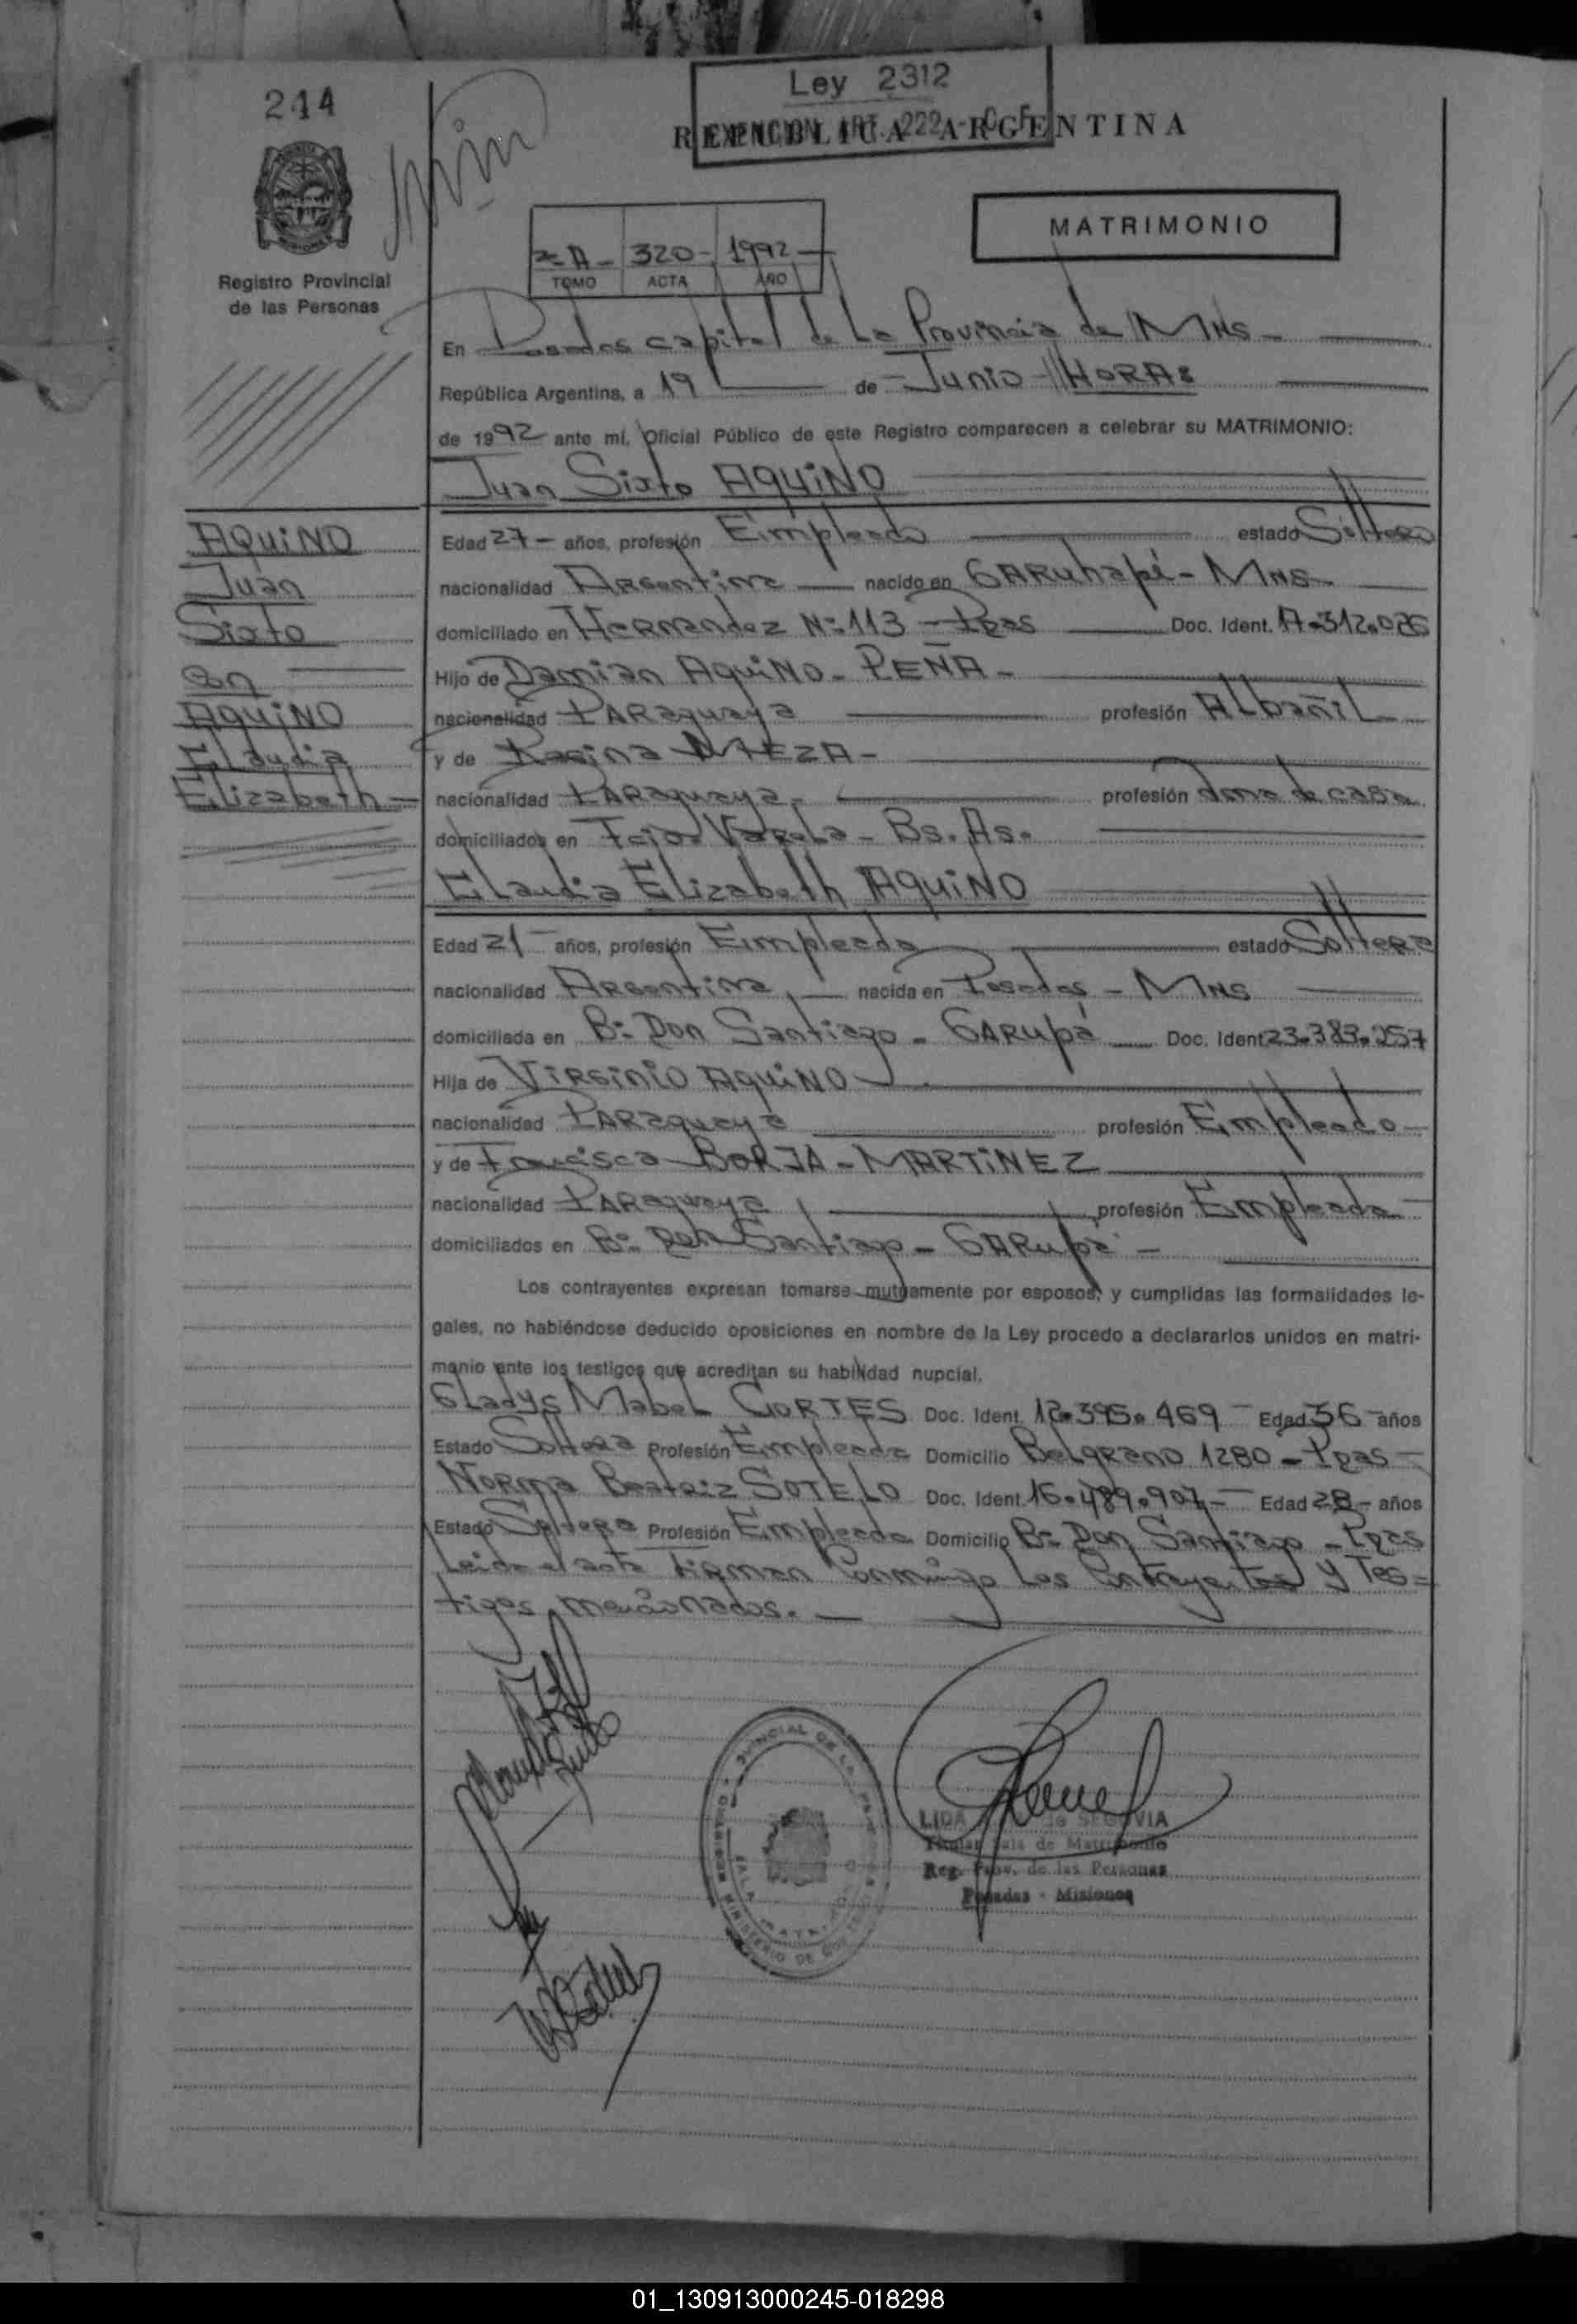 244
Ley 2312
EXENCION ART. 222
REPUBLICA ARGENTINA
MATRIMONIO
2-A- 320- 1992
TOMO ACTA AÑO
Registro Provincial
de las Personas
En Posadas capital de La Provincia de MNS-
República Argentina, a 19 de Junio HORA:
de 1992 ante mí, Oficial Público de este Registro comparecen a celebrar su MATRIMONIO:
Juan Sixto AQUINO
AQUINO
Juan
Sixto
con
AQUINO
Claudia
Elizabeth
Edad 27- años, profesión Empleado estado Soltero
nacionalidad Argentina nacido en GARUhapé- MNS-
domiciliado en Hernandez Nº 113 - Pdas Doc. Ident. 17.312.026
Hijo de Damian AQUINO- PEÑA-
nacionalidad PARAguaya profesión ALbañiL
y de Regina MEZA-
nacionalidad PARAguaya- profesión Ama de casa
domiciliados en Fcio. VareLa- Bs. As.
CLaudia Elizabeth AQUINO
Edad 21 años, profesión Empleada estado Soltera
nacionalidad Argentina nacida en Posadas - MNS
domiciliada en Bº Don Santiago - GARUpá Doc. Ident 23.383.257
Hija de VIRGINIO AQUINO
nacionalidad PARAguaya profesión Empleado
y de Francisca BORJA - MARTINEZ
nacionalidad PARAguaya profesión Empleada
domiciliados en Bº Don Santiago - GARUpá -
Los contrayentes expresan tomarse mutuamente por esposos, y cumplidas las formalidades le-
gales, no habiéndose deducido oposiciones en nombre de la Ley procedo a declararlos unidos en matri-
monio ante los testigos que acreditan su habilidad nupcial.
GLadys MabeL CORTES Doc. Ident. 12.395.469 Edad 36 años
Estado Soltera Profesión Empleada Domicilio BeLgrano 1280 - Pdas -
Norma Beatriz SOTELO Doc. Ident 16.489.907- Edad 28- años
Estado Soltera Profesión Empleada Domicilio Bº Don Santiago - Pdas
Leida el acta firman Conmigo Los Contrayentes y Tes=
tigos mencionados.
LIDA de SEGOVIA
Titular Sala de Matrimonio
Reg. Prov. de las Personas
Posadas - Misiones
01_130913000245-018298